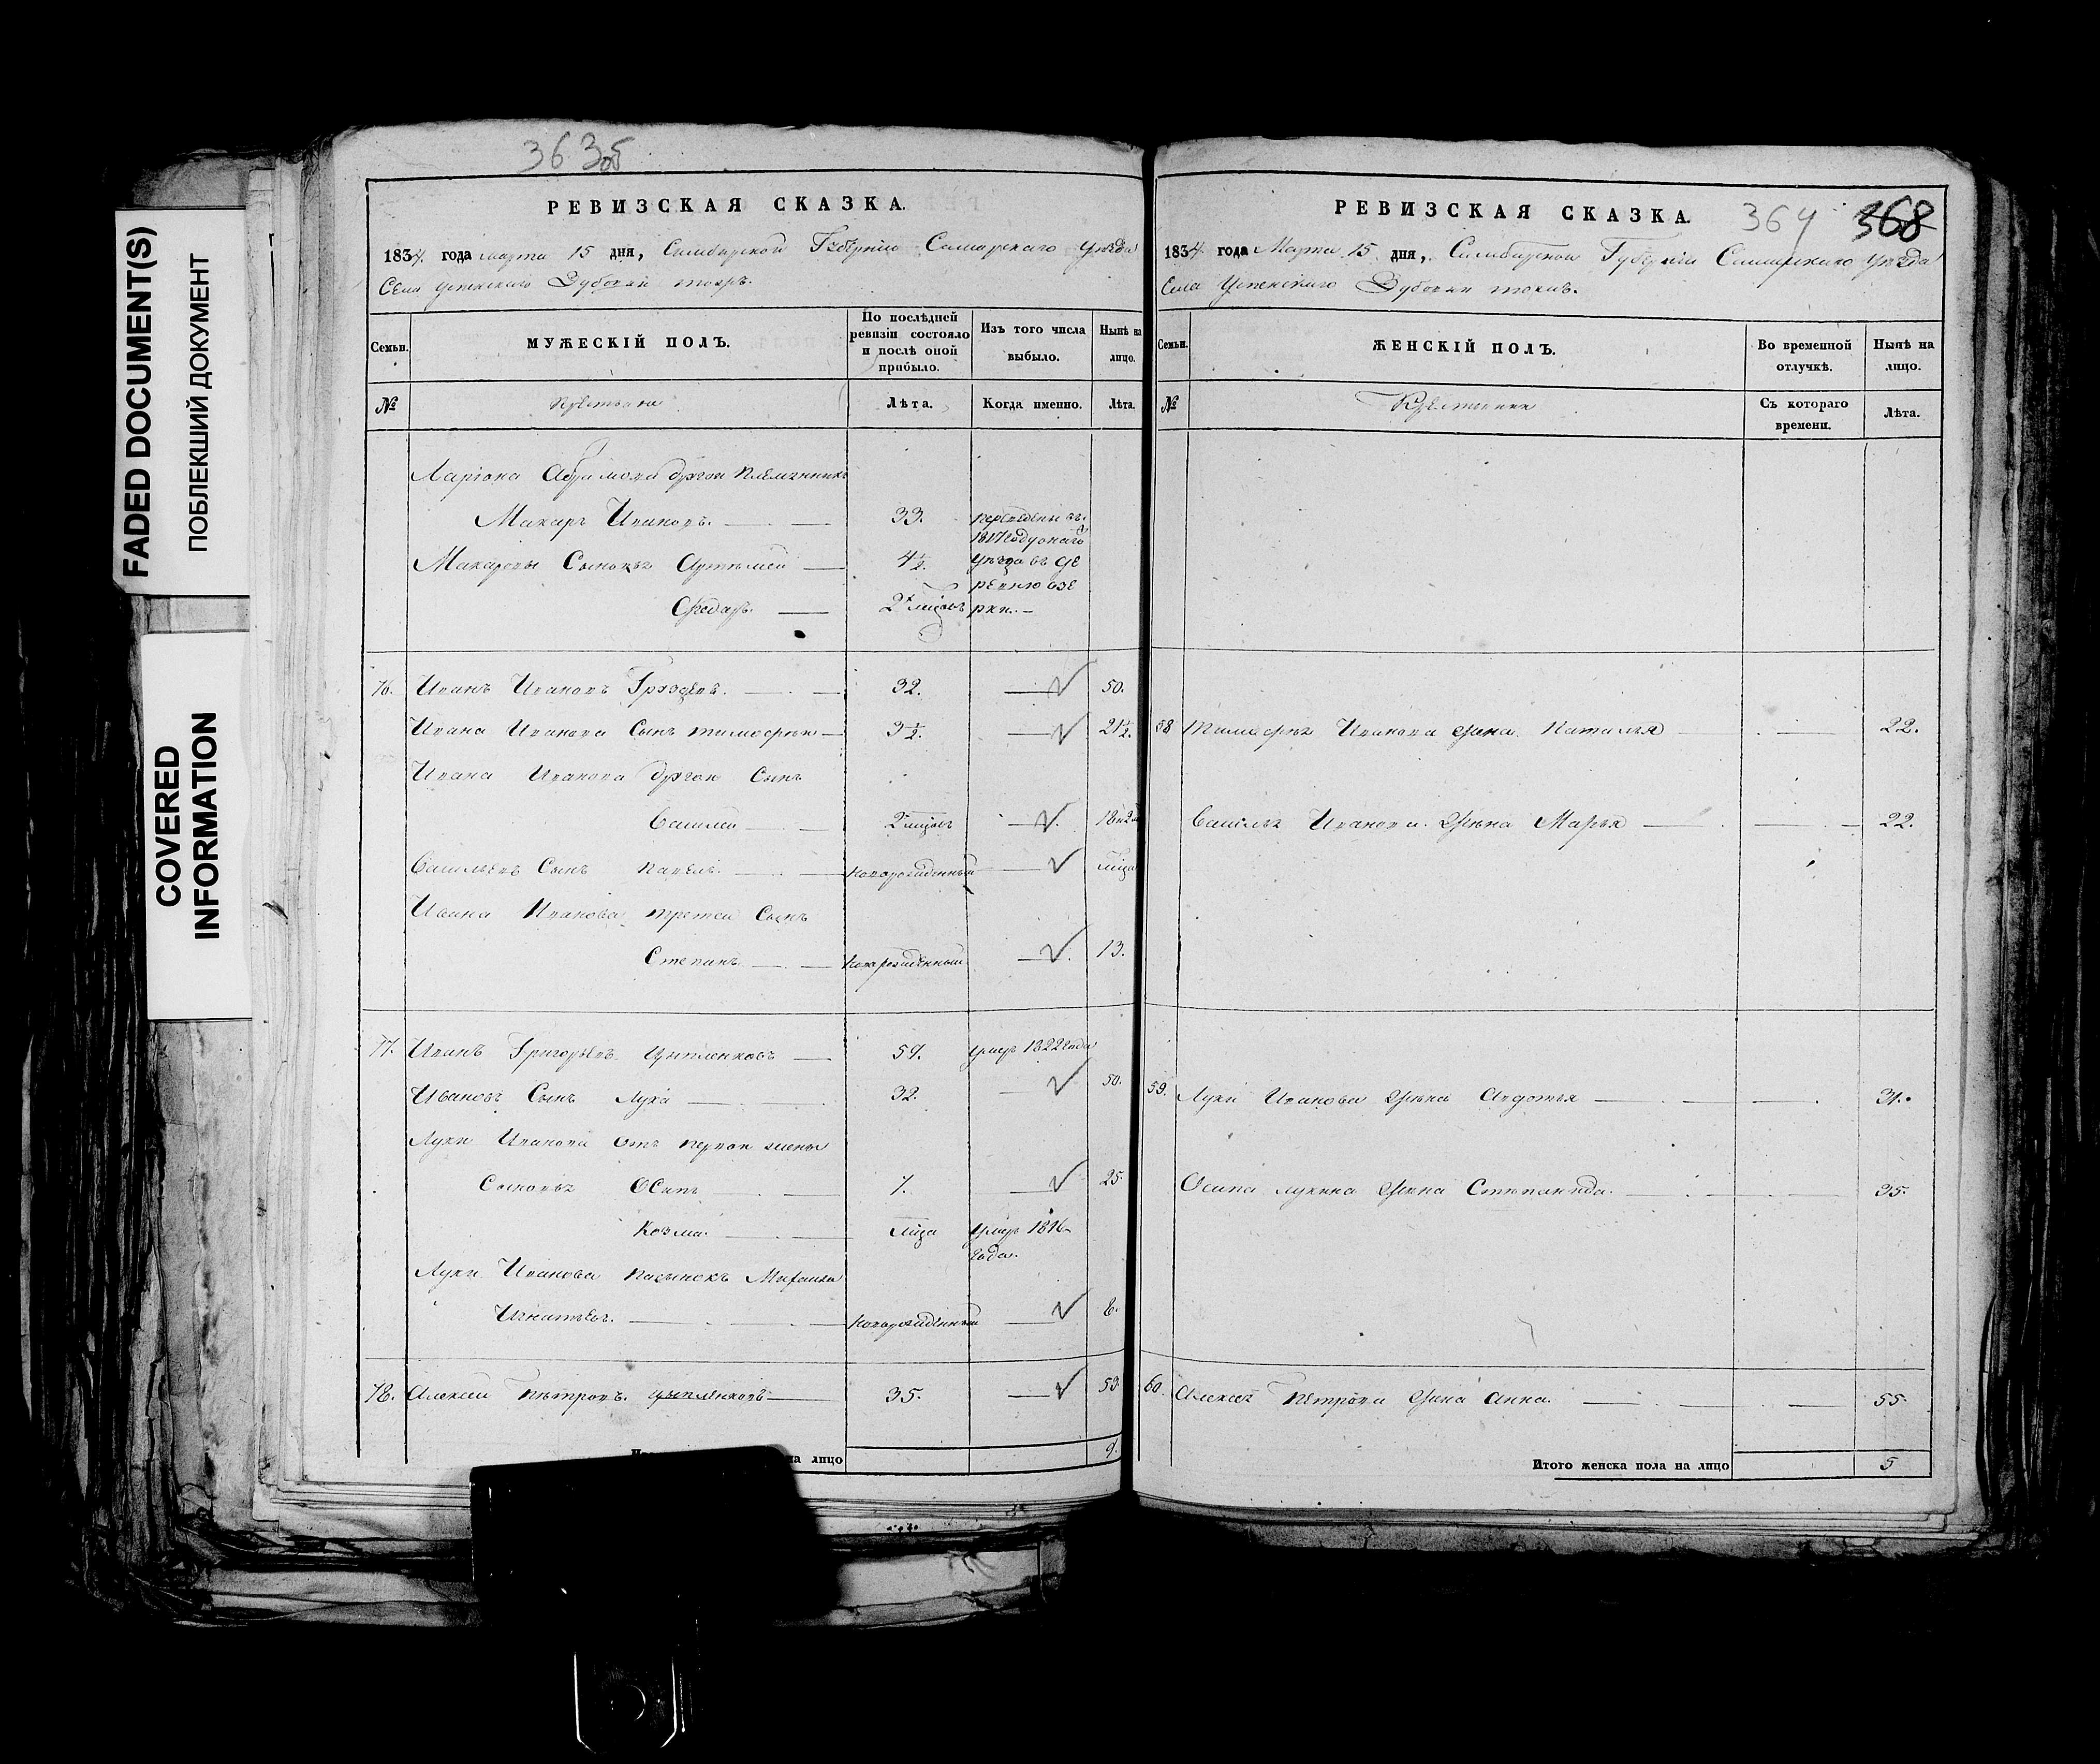 FADED DOCUMENT(S)
ПОБЛЕКШИЙ ДОКУМЕНТ
COVERED
INFORMATION
363об
РЕВИЗСКАЯ СКАЗКА.
1834. года марта 15 дня, Симбирской Губернии Самарскаго уезда
Села Успенскаго Дубовой тожъ.
Семьи.
МУЖЕСКІЙ ПОЛЪ.
По послѣдней ревизіи состояло и послѣ оной прибыло.
Изъ того числа выбыло.
Нынѣ на лицо.
№
Крестьяне
Лѣта.
Когда именно.
Лѣта.
Ларіона Абрамова другой племянникъ
Макаръ Ивановъ. 33. переведены въ
1817 году онаго
Макаровы Сыновья Артемей 4½. уезда въ де
ревню озе
Федоръ. 2х месецовъ рки.
76. Иванъ Ивановъ Груздевъ. 32. 50.
Ивана Иванова Сынъ тимофеи 3½. 21½.
Ивана Иванова другои Сынъ
Василеи 2 месецовъ 18 и 2
Васильевъ Сынъ павелъ. новорожденный месеца
Ивана Иванова третеи Сынъ
Степанъ новорожденный 13.
77. Иванъ Григорьевъ Цыпленковъ 57. умеръ 1822 года
Ивановъ Сынъ Лука 32. 50.
Луки Иванова отъ первои жены
Сыновья Осипъ 7. 25.
Козма. месеца умеръ 1816
года.
Луки Иванова пасынокъ Михаила
Игнатьевъ. новорожденный 8.
78. Алексеи Петровъ. цыпленковъ 35. 53.
на лицо 9.
РЕВИЗСКАЯ СКАЗКА.
364 368
1834. года Марта 15 дня, Симбирскои Губернии Самарскаго уезда
Села Успенскаго Дубовки тожъ.
Семьи.
ЖЕНСКІЙ ПОЛЪ.
Во временной отлучкѣ.
Нынѣ на лицо.
№
Крестьянки
Съ котораго времени.
Лѣта.
58 Тимофея Иванова жена Наталья 22.
Василья Иванова жена Марья 22.
59. Луки Иванова жена Авдотья 31.
Осипа лукина жена Степанида. 35.
60. Алексея Петрова жена Анна. 55.
Итого женска пола на лицо 5